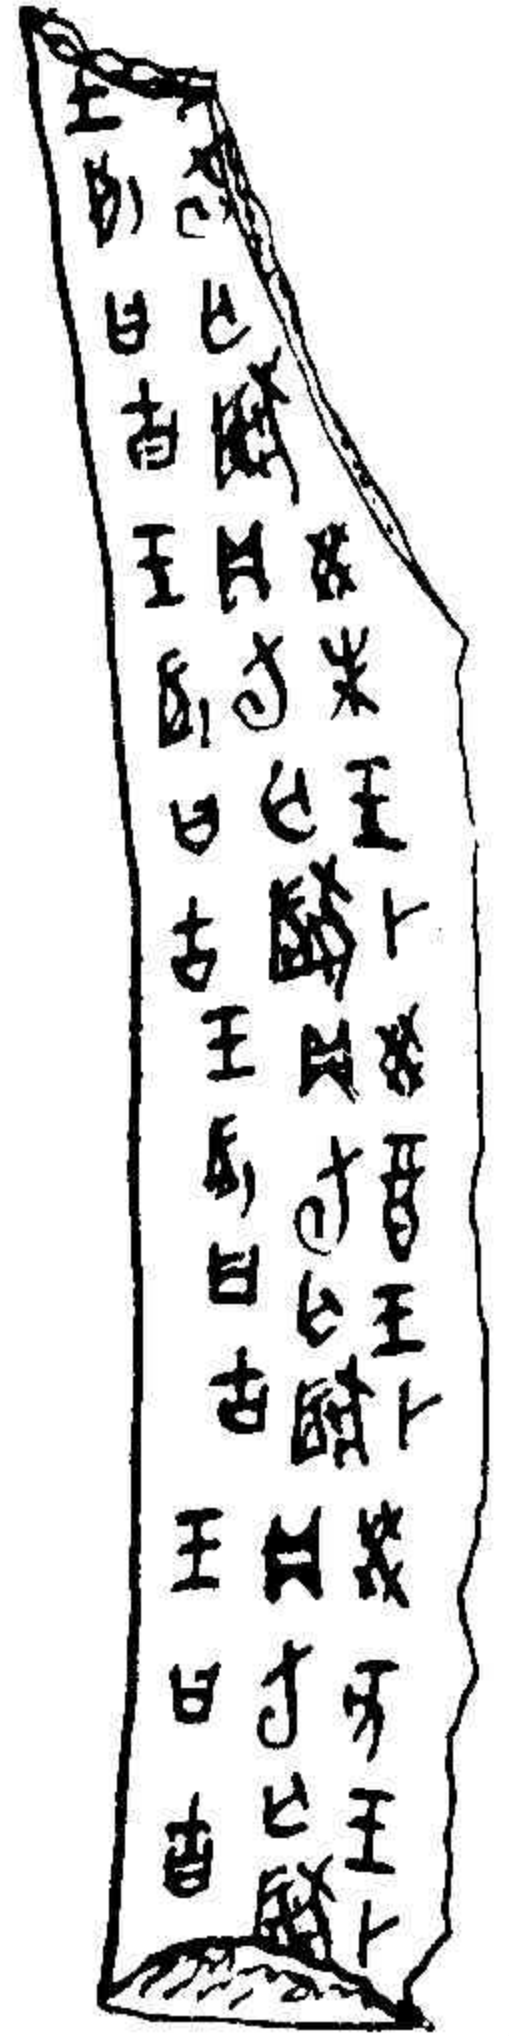 癸未王卜癸酉王卜癸亥王卜
旬亡𡆥貞旬亡𡆥貞旬亡𡆥貞旬亡𡆥
王占曰吉王占曰吉王占曰吉王曰吉